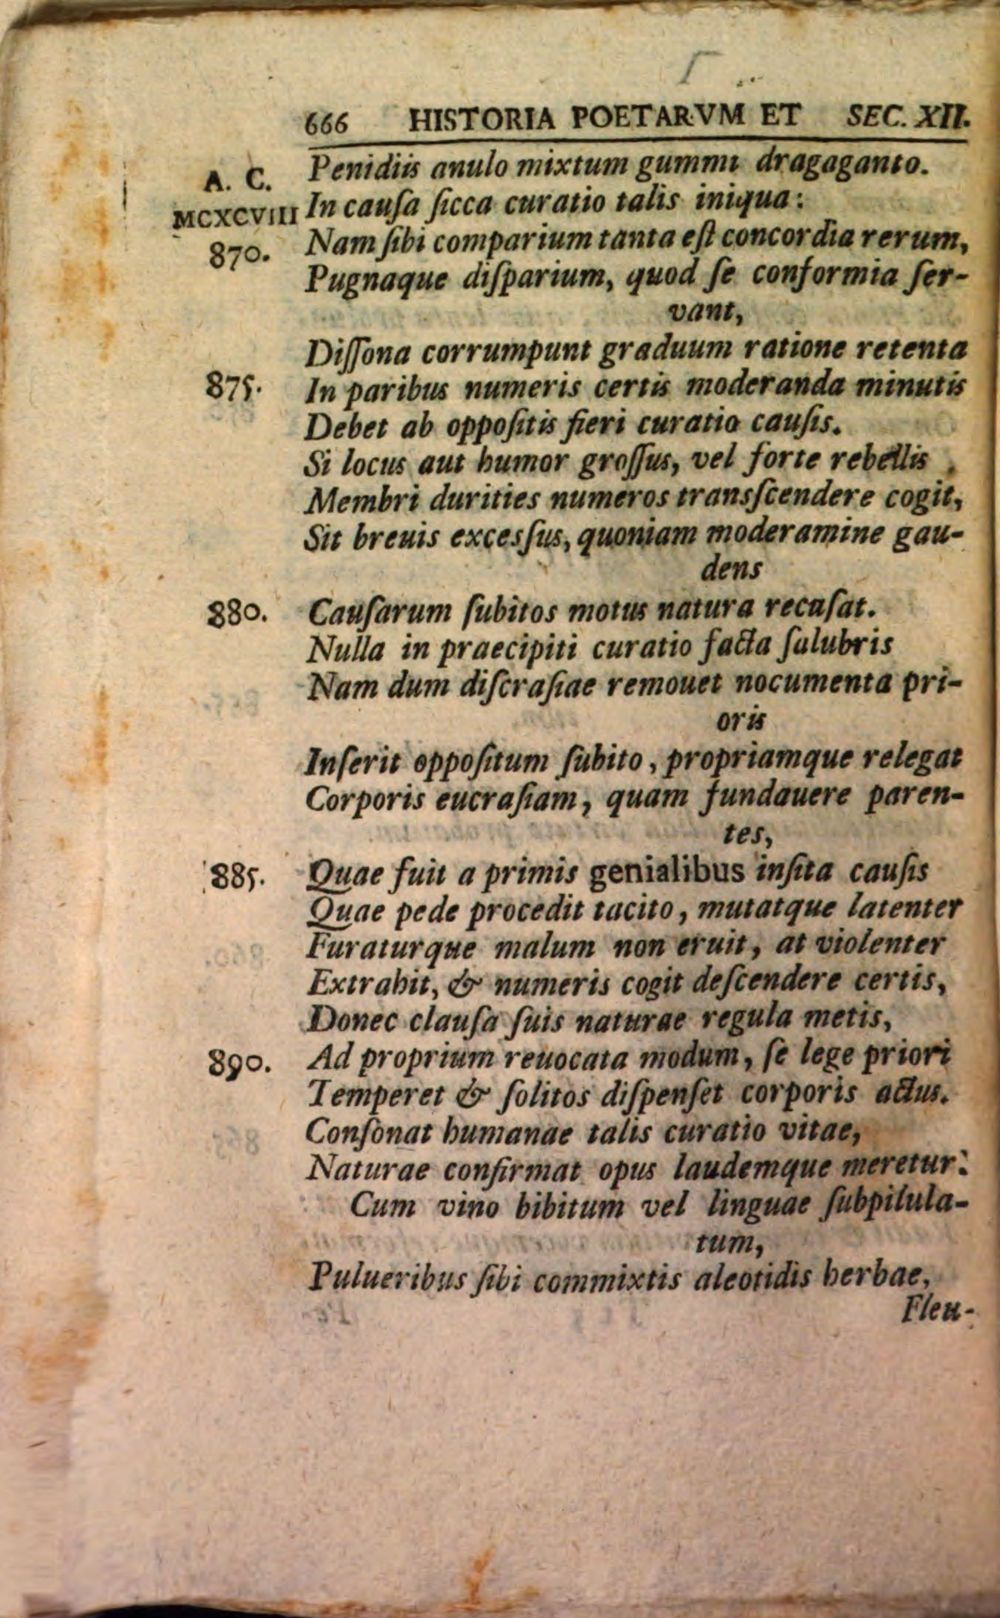 666 HISTORIA POETARVM ET SEC. XII.
A. C. Penidiis anulo mixtum gummi dragaganto.
MCXCVIII In cauſa ſicca curatio talis iniqua:
870. Nam ſibi comparium tanta eſt concordia rerum,
Pugnaque diſparium, quod ſe conformia ſer-
vant,
Diſſona corrumpunt graduum ratione retenta
875. In paribus numeris certis moderanda minutis
Debet ab oppoſitis fieri curatio cauſis.
Si locus aut humor groſſus, vel forte rebellis
Membri durities numeros transſcendere cogit,
Sit breuis excesſus, quoniam moderamine gau-
dens
880. Cauſarum ſubitos motus natura recuſat.
Nulla in praecipiti curatio facta ſalubris
Nam dum diſcraſiae remouet nocumenta pri-
oris
Inſerit oppoſitum ſubito, propriamque relegat
Corporis eucraſiam, quam fundauere paren-
tes,
885. Quae fuit a primis genialibus inſita cauſis
Quae pede procedit tacito, mutatque latenter
Furaturque malum non eruit, at violenter
Extrahit, & numeris cogit deſcendere certis,
Donec clauſa ſuis naturae regula metis,
890. Ad proprium reuocata modum, ſe lege priori
Temperet & ſolitos diſpenſet corporis actus.
Conſonat humanae talis curatio vitae,
Naturae confirmat opus laudemque meretur:
Cum vino bibitum vel linguae ſubpilula-
tum,
Pulueribus ſibi commixtis aleotidis herbae,
Fleu-